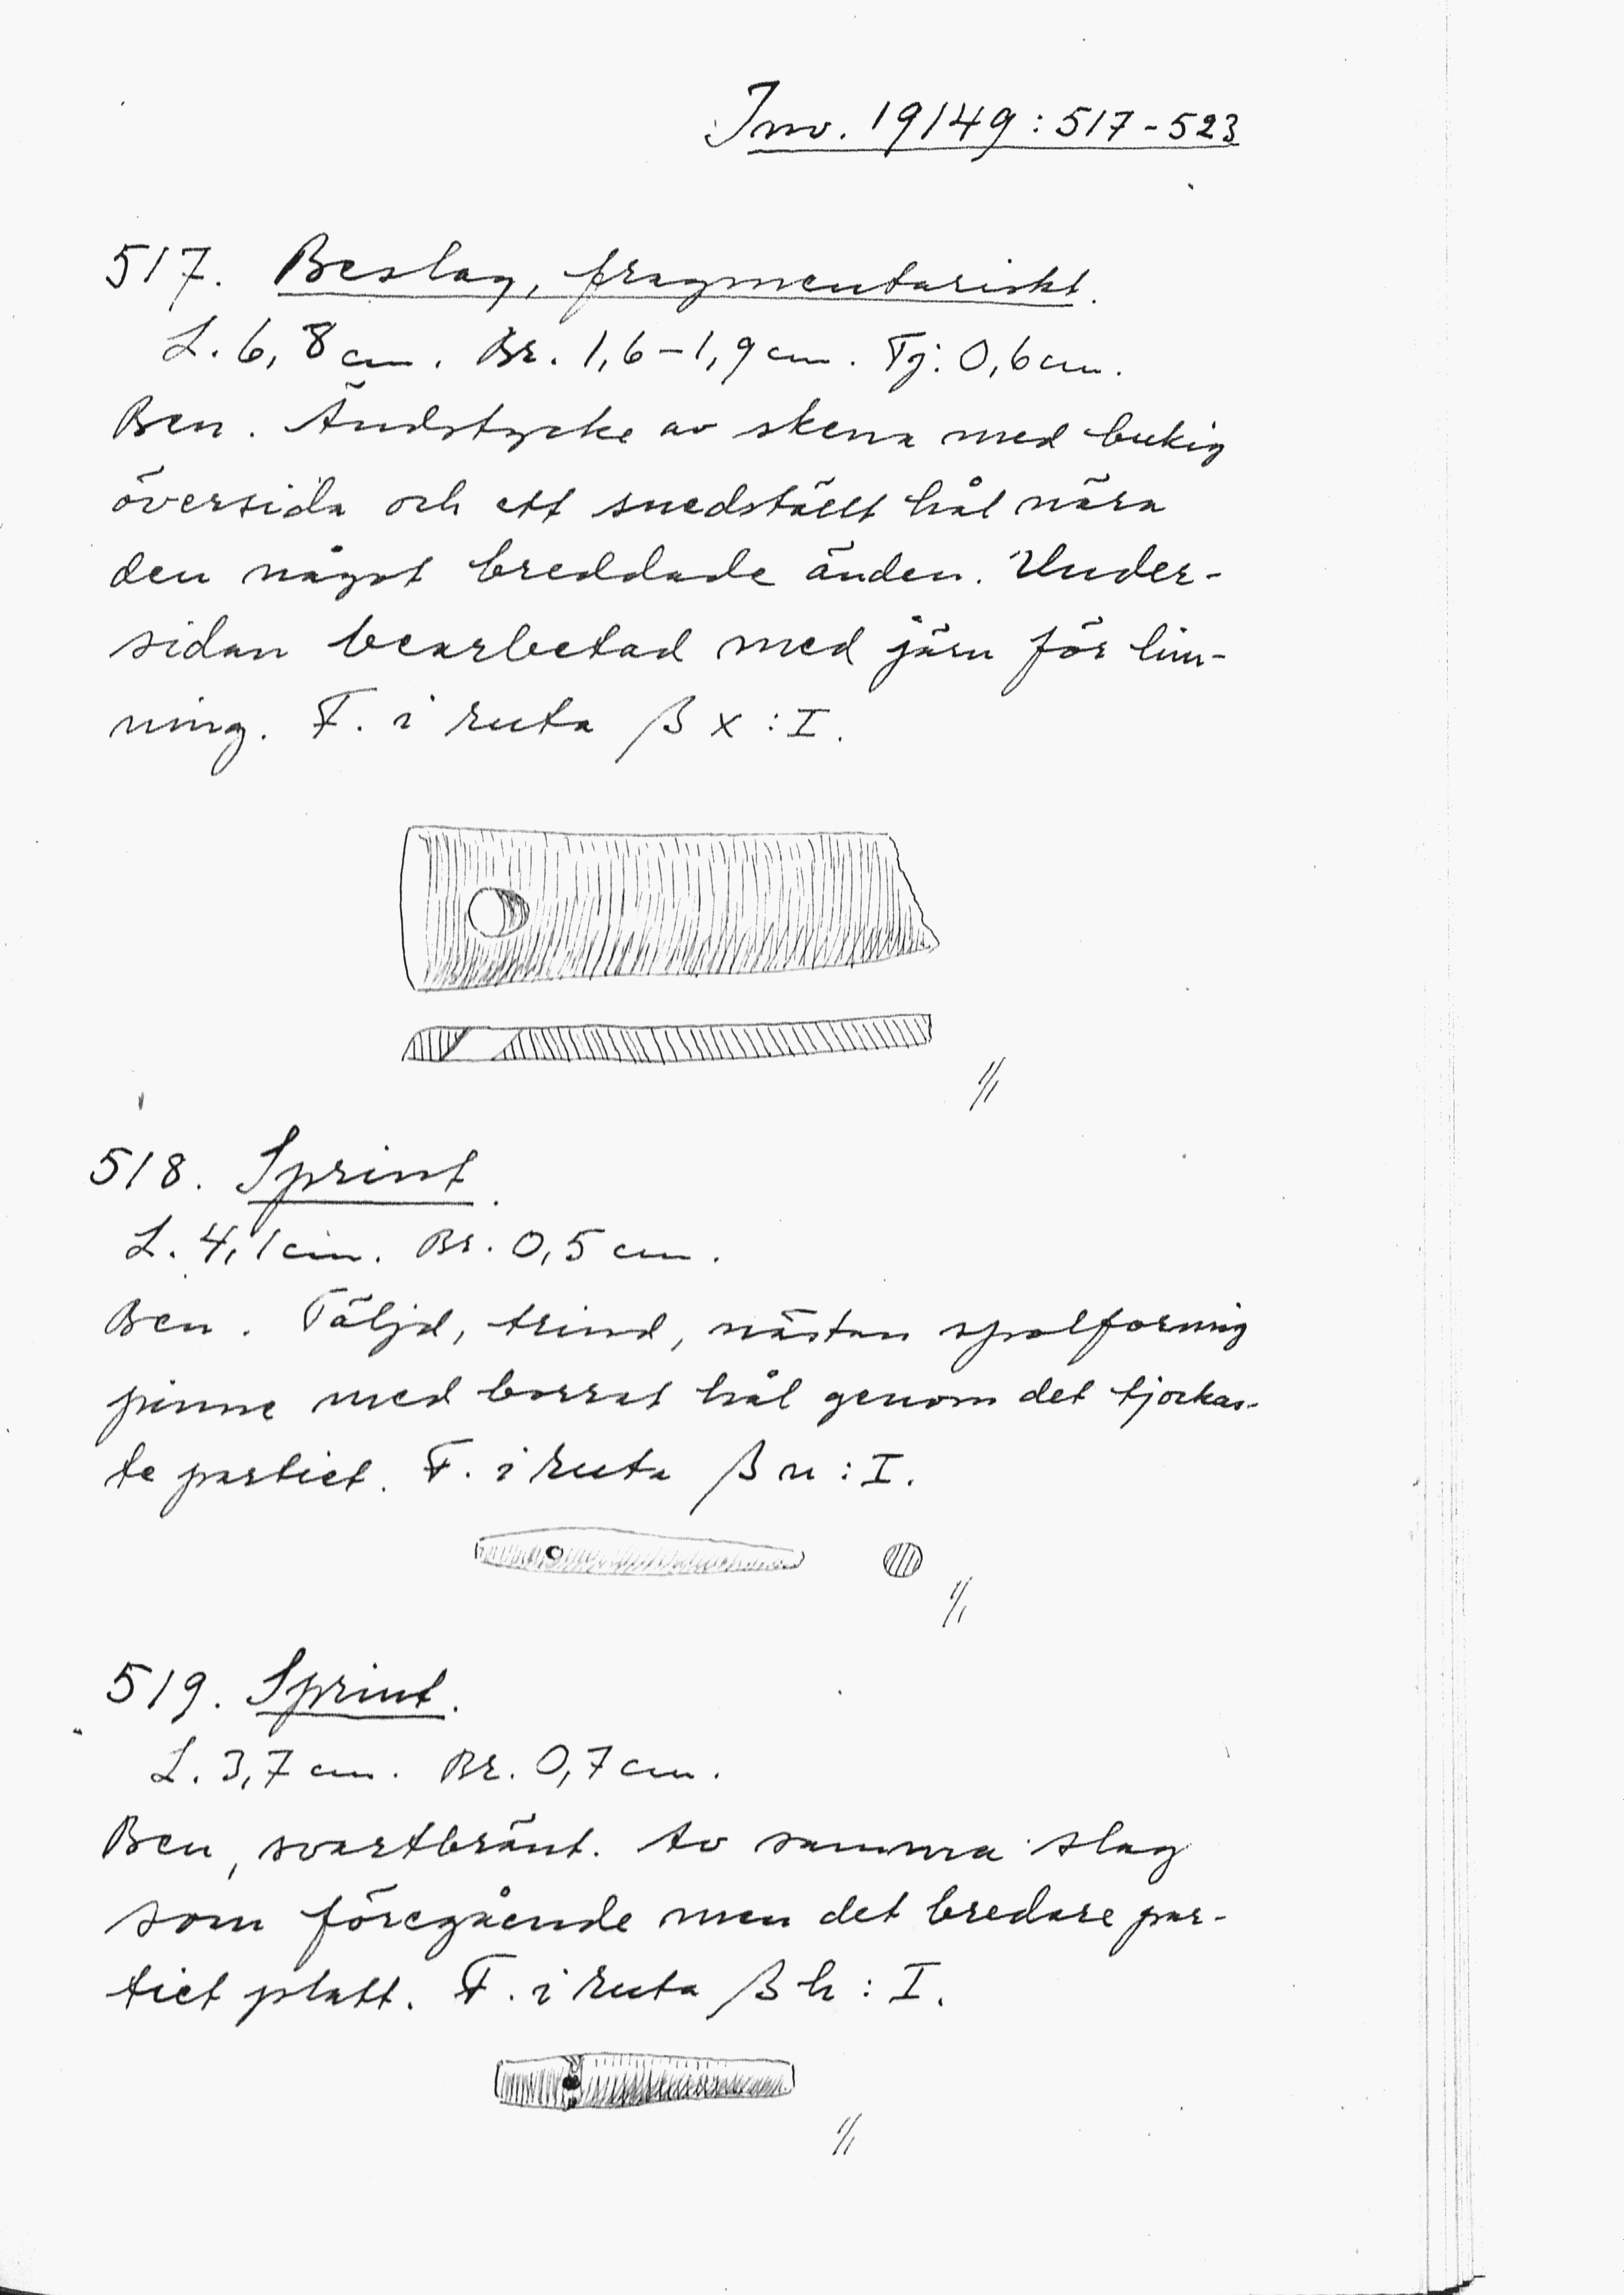 Inv. 19149:517-523
517. Beslag, fragmentariskt.
L. 6,8 cm. Br. 1,6-1,9 cm. Tj. 0,6 cm.
Ben. Ändstycke av skena med bukig
översida och ett snedställt hål nära
den något breddade änden. Under-
sidan bearbetad med järn för lim-
ning. F. i ruta β x : I.
1/1
518. Sprint.
L. 4,1 cm. Br. 0,5 cm.
Ben. Täljd, trind, nästan spolformig
pinne med borrat hål genom det tjockas-
te partiet. F. i ruta β n : I.
1/1
519. Sprint.
L. 3,7 cm. Br. 0,7 cm.
Ben, svartbränt. Av samma slag
som föregående men det bredare par-
tiet platt. F. i ruta β h : I.
1/1